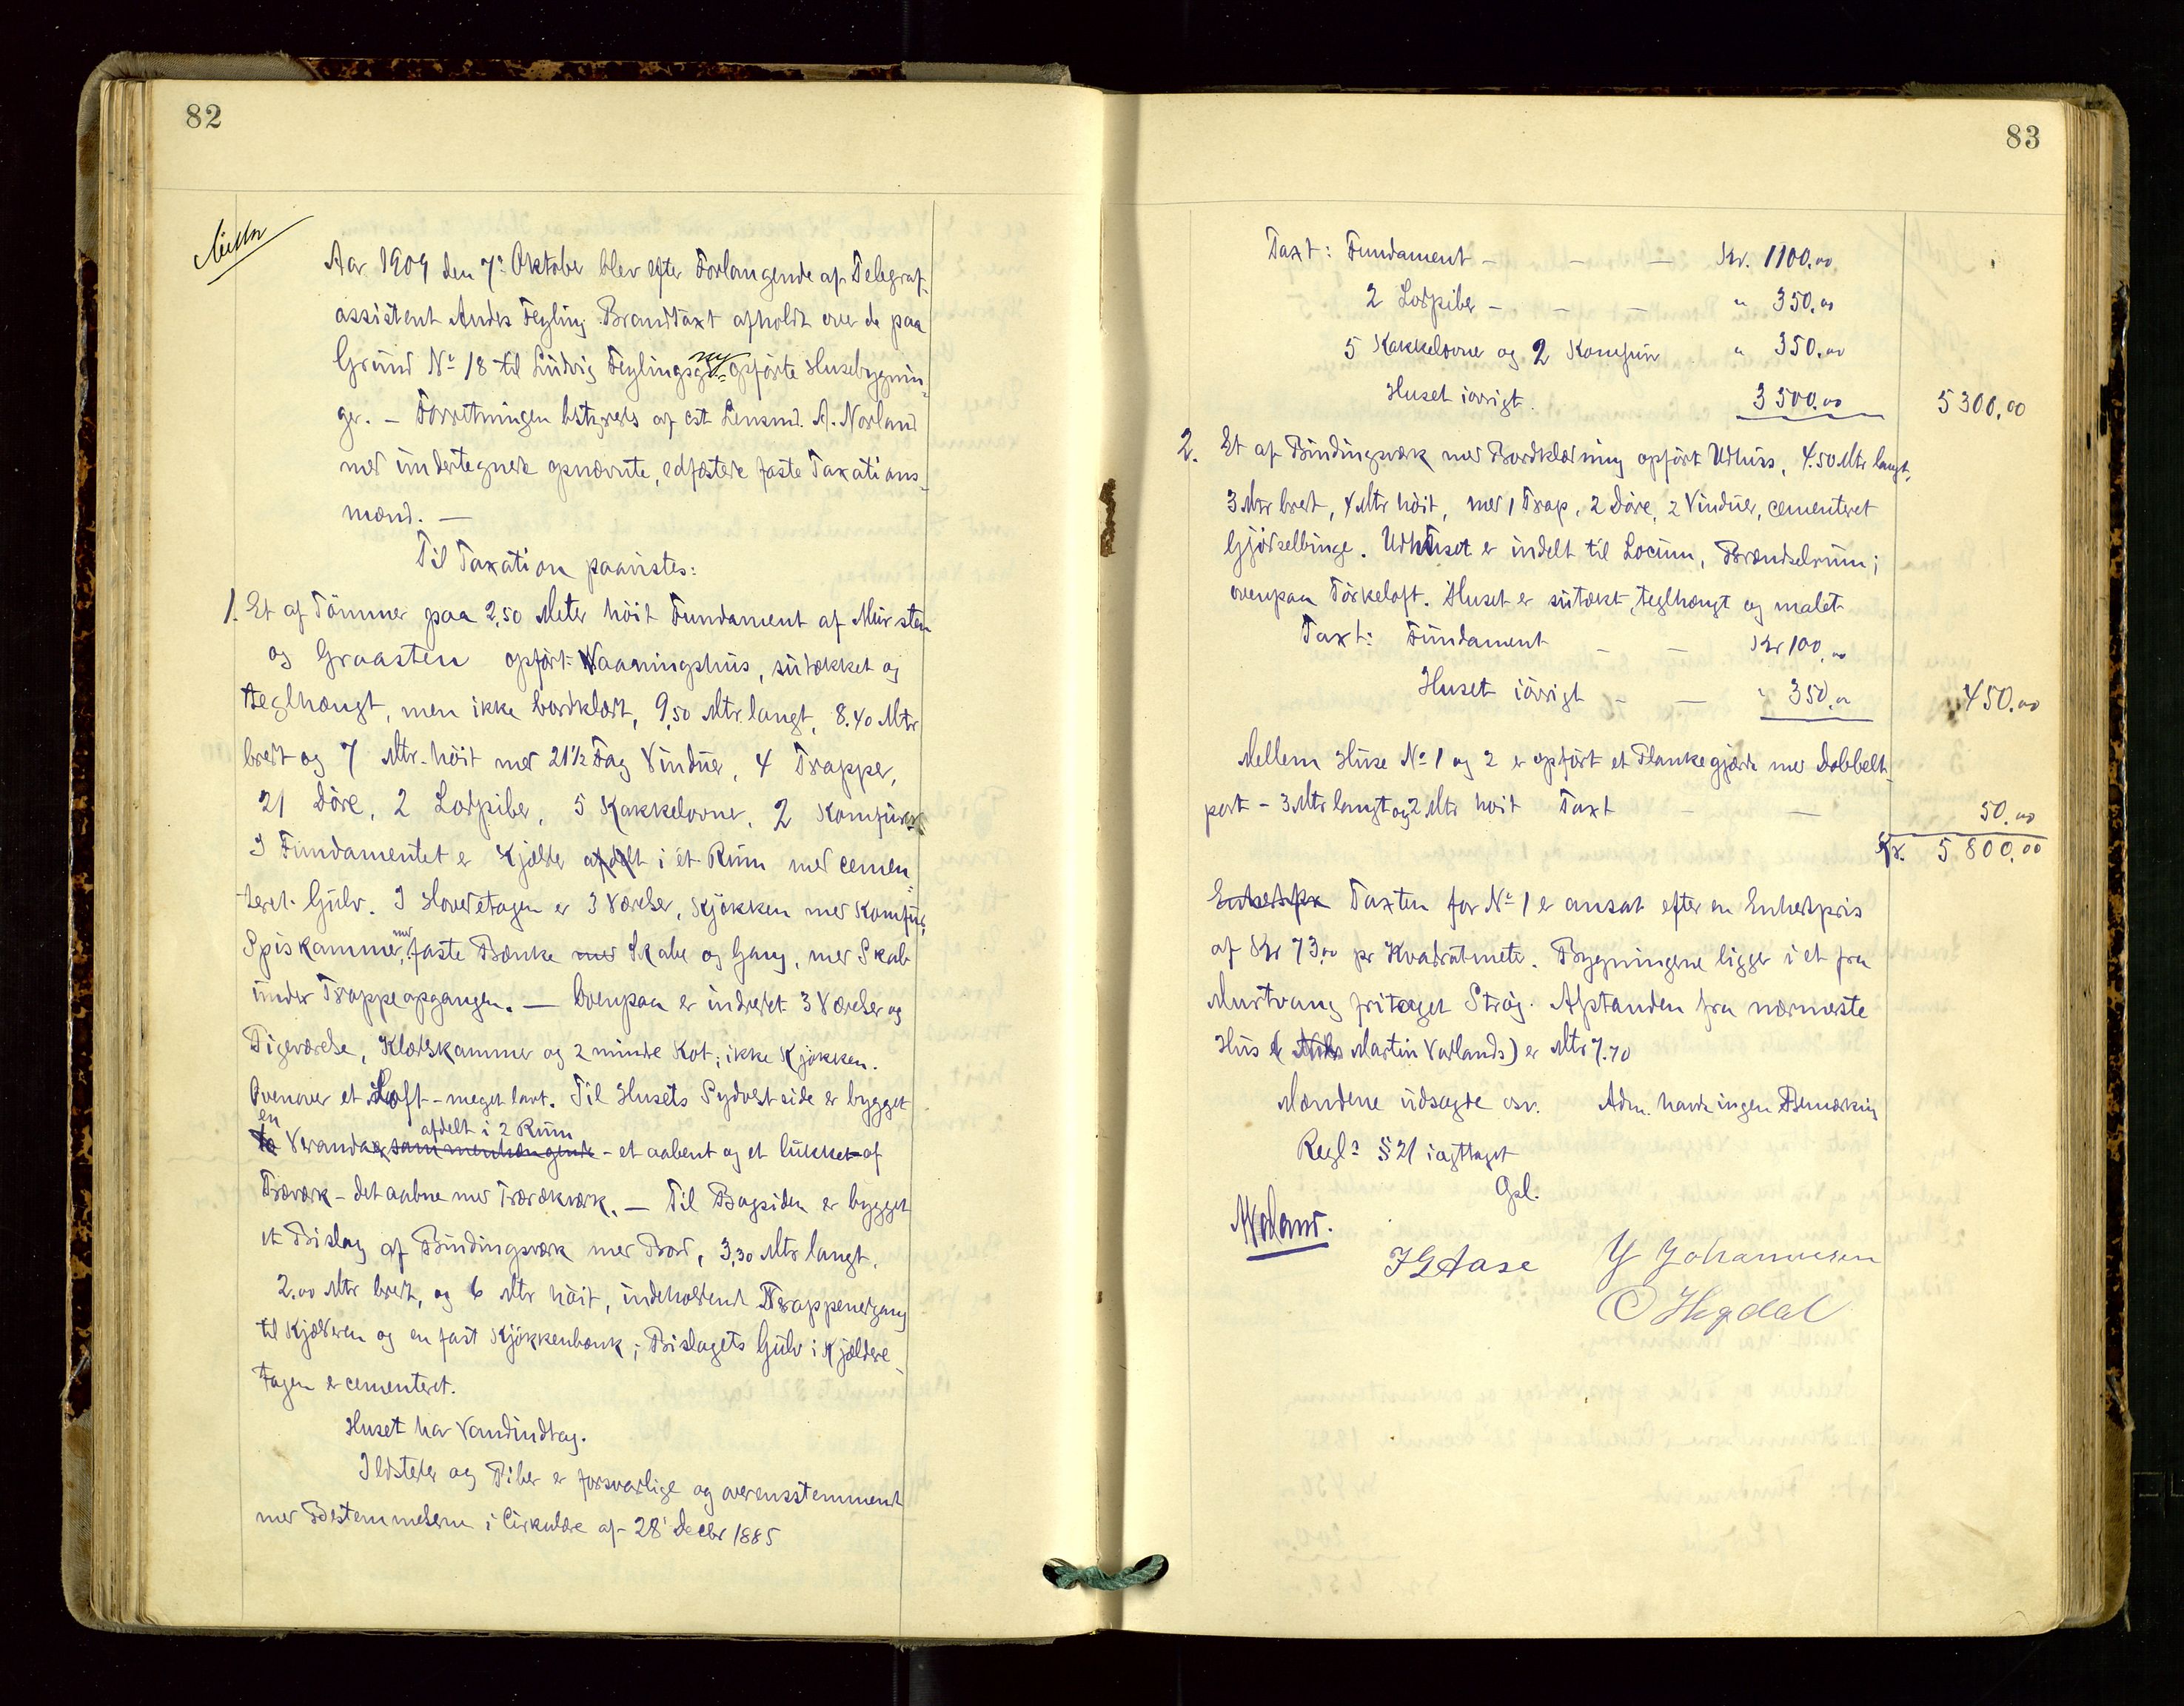 82
Aar 1909 den 7de Oktober blev efter Forlangende af Telegraf-
assistent Anders Feyling Brandtaxt afholdt over de paa
Grund No 18 til Ludvig Feylings gt. ny opförte Husebygnin-
ger. – Forretningen bestyredes af cst Lensmd. A. Norland
med undertegnede opnævnte, edfæstede faste Taxations-
mænd. –
Til Taxation paavistes:
1. Et af Tömmer paa 2,50 Meter höit Fundament af Mursten
og Graasten opfört Vaaningshus, sutækket og
teglhængt, men ikke bordklædt, 9,50 Mtr. langt, 8.40 Mtr
bredt og 7 Mtr. höit med 21½ Fag Vinduer, 4 Trapper,
21 Döre, 2 Lodpiber, 5 Kakkelovne, 2 Komfurer
I Fundamentet er Kjelder afdelt i et Rum med cemen-
teret Gulv. I Hovedetagen er 3 Værelser, Kjökken med Komfur,
Spiskammer, med faste Bænke med Skabe og Gang, med Skab
under Trappeopgangen. – Ovenpaa er indredet 3 Værelser og
Pigeværelse, Klædskammer og 2 mindre Kot; ikke Kjökken.
Ovenover et Loft – meget lavt. Til Husets Sydvestside er bygget
en
afdelt i 2 Rum
to Verandaer sammenhængende – et aabent og et lukket af
Træværk – det aabne med Trærækværk. – Til Bagsiden er bygget
et Bislag af Bindingsværk med Bord, 3,30 Mtr langt,
2.00 Mtr bredt, og 6 Mtr höit, indeholdende Trappenedgang
til Kjælderen og en fast Kjökkenbænk; Bislagets Gulv i Kjælder-
etagen er cementeret.
Huset har Vandindtag.
Ildsteder og Piber er forsvarlige og overensstemmende
med Bestemmelserne i Cirkulære af 28de Decbr 1885
83
Taxt: Fundament – – – Kr. 1100.00
2 Lodpiber – – – " 350.00
5 Kakkelovne og 2 Komfur " 350.00
Huset iövrigt. 3500.00 5300.00
2. Et af Bindingsværk med Bordklædning opfört Udhus, 4.50 Mtr langt,
3 Mtr bredt, 4 Mtr höit, med 1 Trap, 2 Döre, 2 Vinduer, cementeret
Gjödselbinge. Udhuset er indelt til Locum, Brændselrum;
ovenpaa Törkeloft. Huset er sutækt, teglhængt og malet
Taxt: Fundament – – Kr 100.00
Huset iövrigt – – " 350.00 450.00
Mellem Huse No 1 og 2 er opfört et Plankegjærde med Dobbelt-
port – 3 Mtr langt og 2 Mtr höit Taxt – – 50.00
Kr. 5800.00
Enhedspr Taxten for No 1 er ansat efter en Enhedspris
af Kr 73.00 pr Kvadratmeter. Bygningerne ligger i et fra
Murtvang fritaget Strög. Afstanden fra nærmeste
Hus ( Martin Vatlands) er Mtr 7.70
Mændene udsagde osv. Adm. havde ingen Bemærkning
Regl. § 21 iagttaget
Opl.
Norland.
I G Aase G Johannesen
O Hegdal